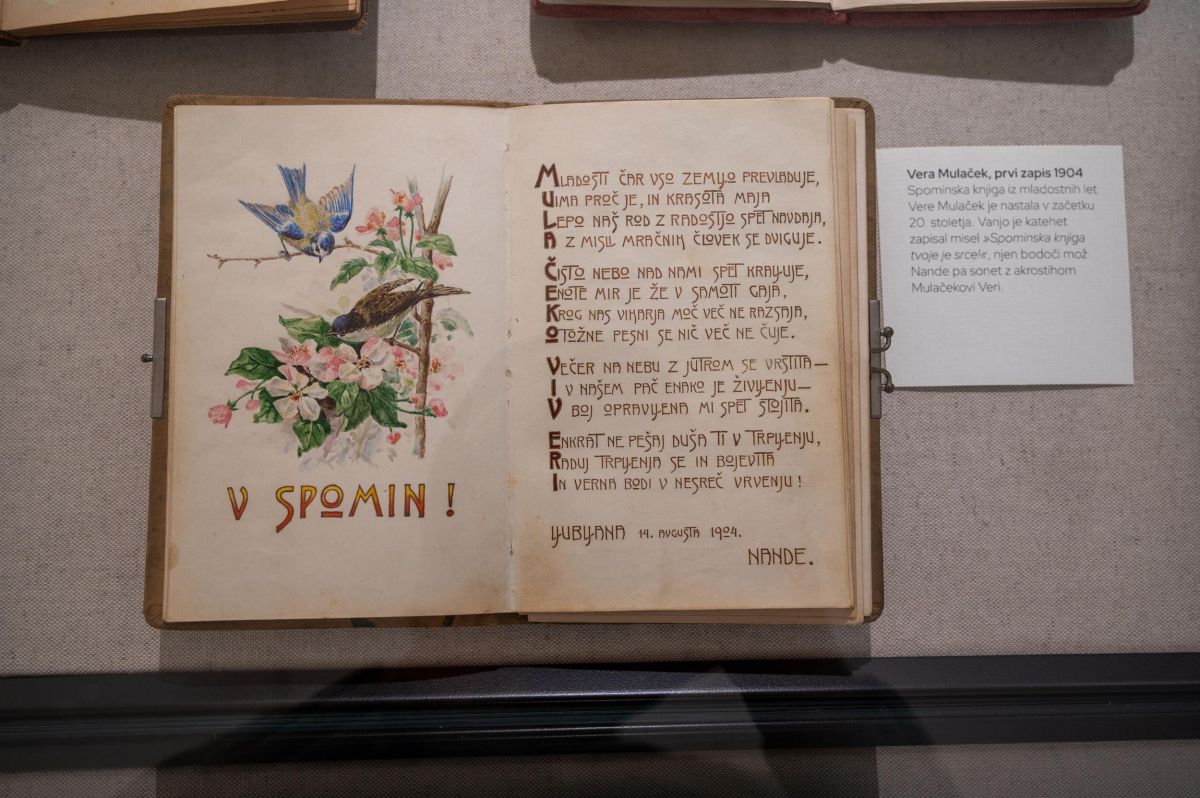 V SPOMIN!
MLADOSTI ČAR VSO ZEMLJO PREVLADUJE,
UIMA PROČ JE, IN KRASOTA MAJA
LEPO NAŠ ROD Z RADOSTJO SPET NAVDAJA,
A Z MISLIJ MRAČNIH ČLOVEK SE DVIGUJE.
ČISTO NEBO NAD NAMI SPET KRALJUJE,
ENOTE MIR JE ŽE V SAMOTI GAJA,
KROG NAS VIHARJA MOČ VEČ NE RAZSAJA,
OTOŽNE PESNI SE NIČ VEČ NE ČUJE.
VEČER NA NEBU Z JUTROM SE VRSTITA—
I V NAŠEM PAČ ENAKO JE ŽIVLJENJU—
V BOJ OPRAVLJENA MI SPET STOJITA.
ENKRAT NE PEŠAJ DUŠA TI V TRPLJENJU,
RADUJ TRPLJENJA SE IN BOJEVITA
IN VERNA BODI V NESREČ VRVENJU!
LJUBLJANA 14. AVGUSTA 1904.
NANDE.
Vera Mulaček, prvi zapis 1904
Spominska knjiga iz mladostnih let
Vere Mulaček je nastala v začetku
20. stoletja. Vanjo je katehet
zapisal misel »Spominska knjiga
tvoje je srce!«, njen bodoči mož
Nande pa sonet z akrostihom
Mulačekovi Veri.